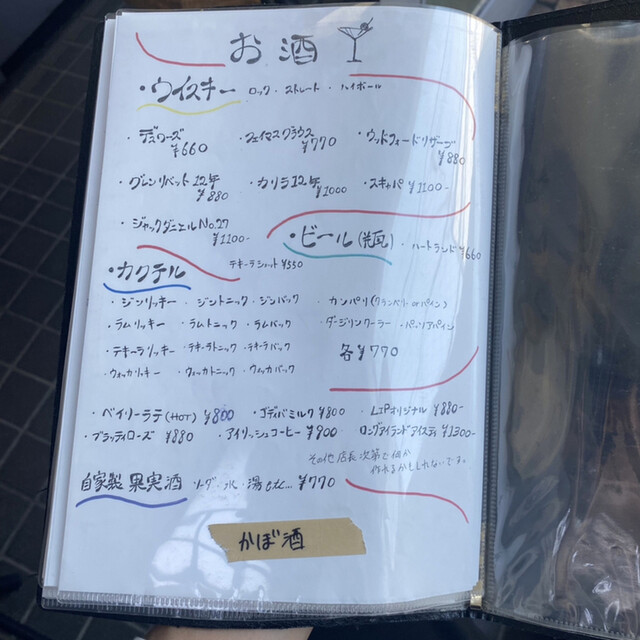 お酒
・ウイスキー ロック・ストレート・ハイボール
・デュワーズ ¥660 ・フェイマスグラウス ¥770 ・ウッドフォードリザーブ ¥880
・グレンリベット12年 ¥880 ・カリラ12年 ¥1000 ・スキャパ ¥1100-
・ジャックダニエルNo.27 ¥1100-
・ビール(瓶) ・ハートランド ¥660
・カクテル テキーラショット ¥550
・ジンリッキー ・ジントニック ・ジンバック ・カンパリ(クランベリー or パイン)
・ラムリッキー ・ラムトニック ・ラムバック ・ダージリンクーラー ・パッソアパイン
・テキーラリッキー ・テキーラトニック ・テキーラバック 各¥770
・ウォッカリッキー ・ウォッカトニック ・ウォッカバック
・ベイリーラテ(HOT) ¥800 ・ゴディバミルク ¥800 ・LIPオリジナル ¥880-
・ブラッディローズ ¥880 ・アイリッシュコーヒー ¥900 ロングアイランドアイスティ ¥1300-
その他 店長次第で何か
作れるかもしれないです。
自家製 果実酒 ソーダ・水・湯 etc... ¥770
かぼ酒